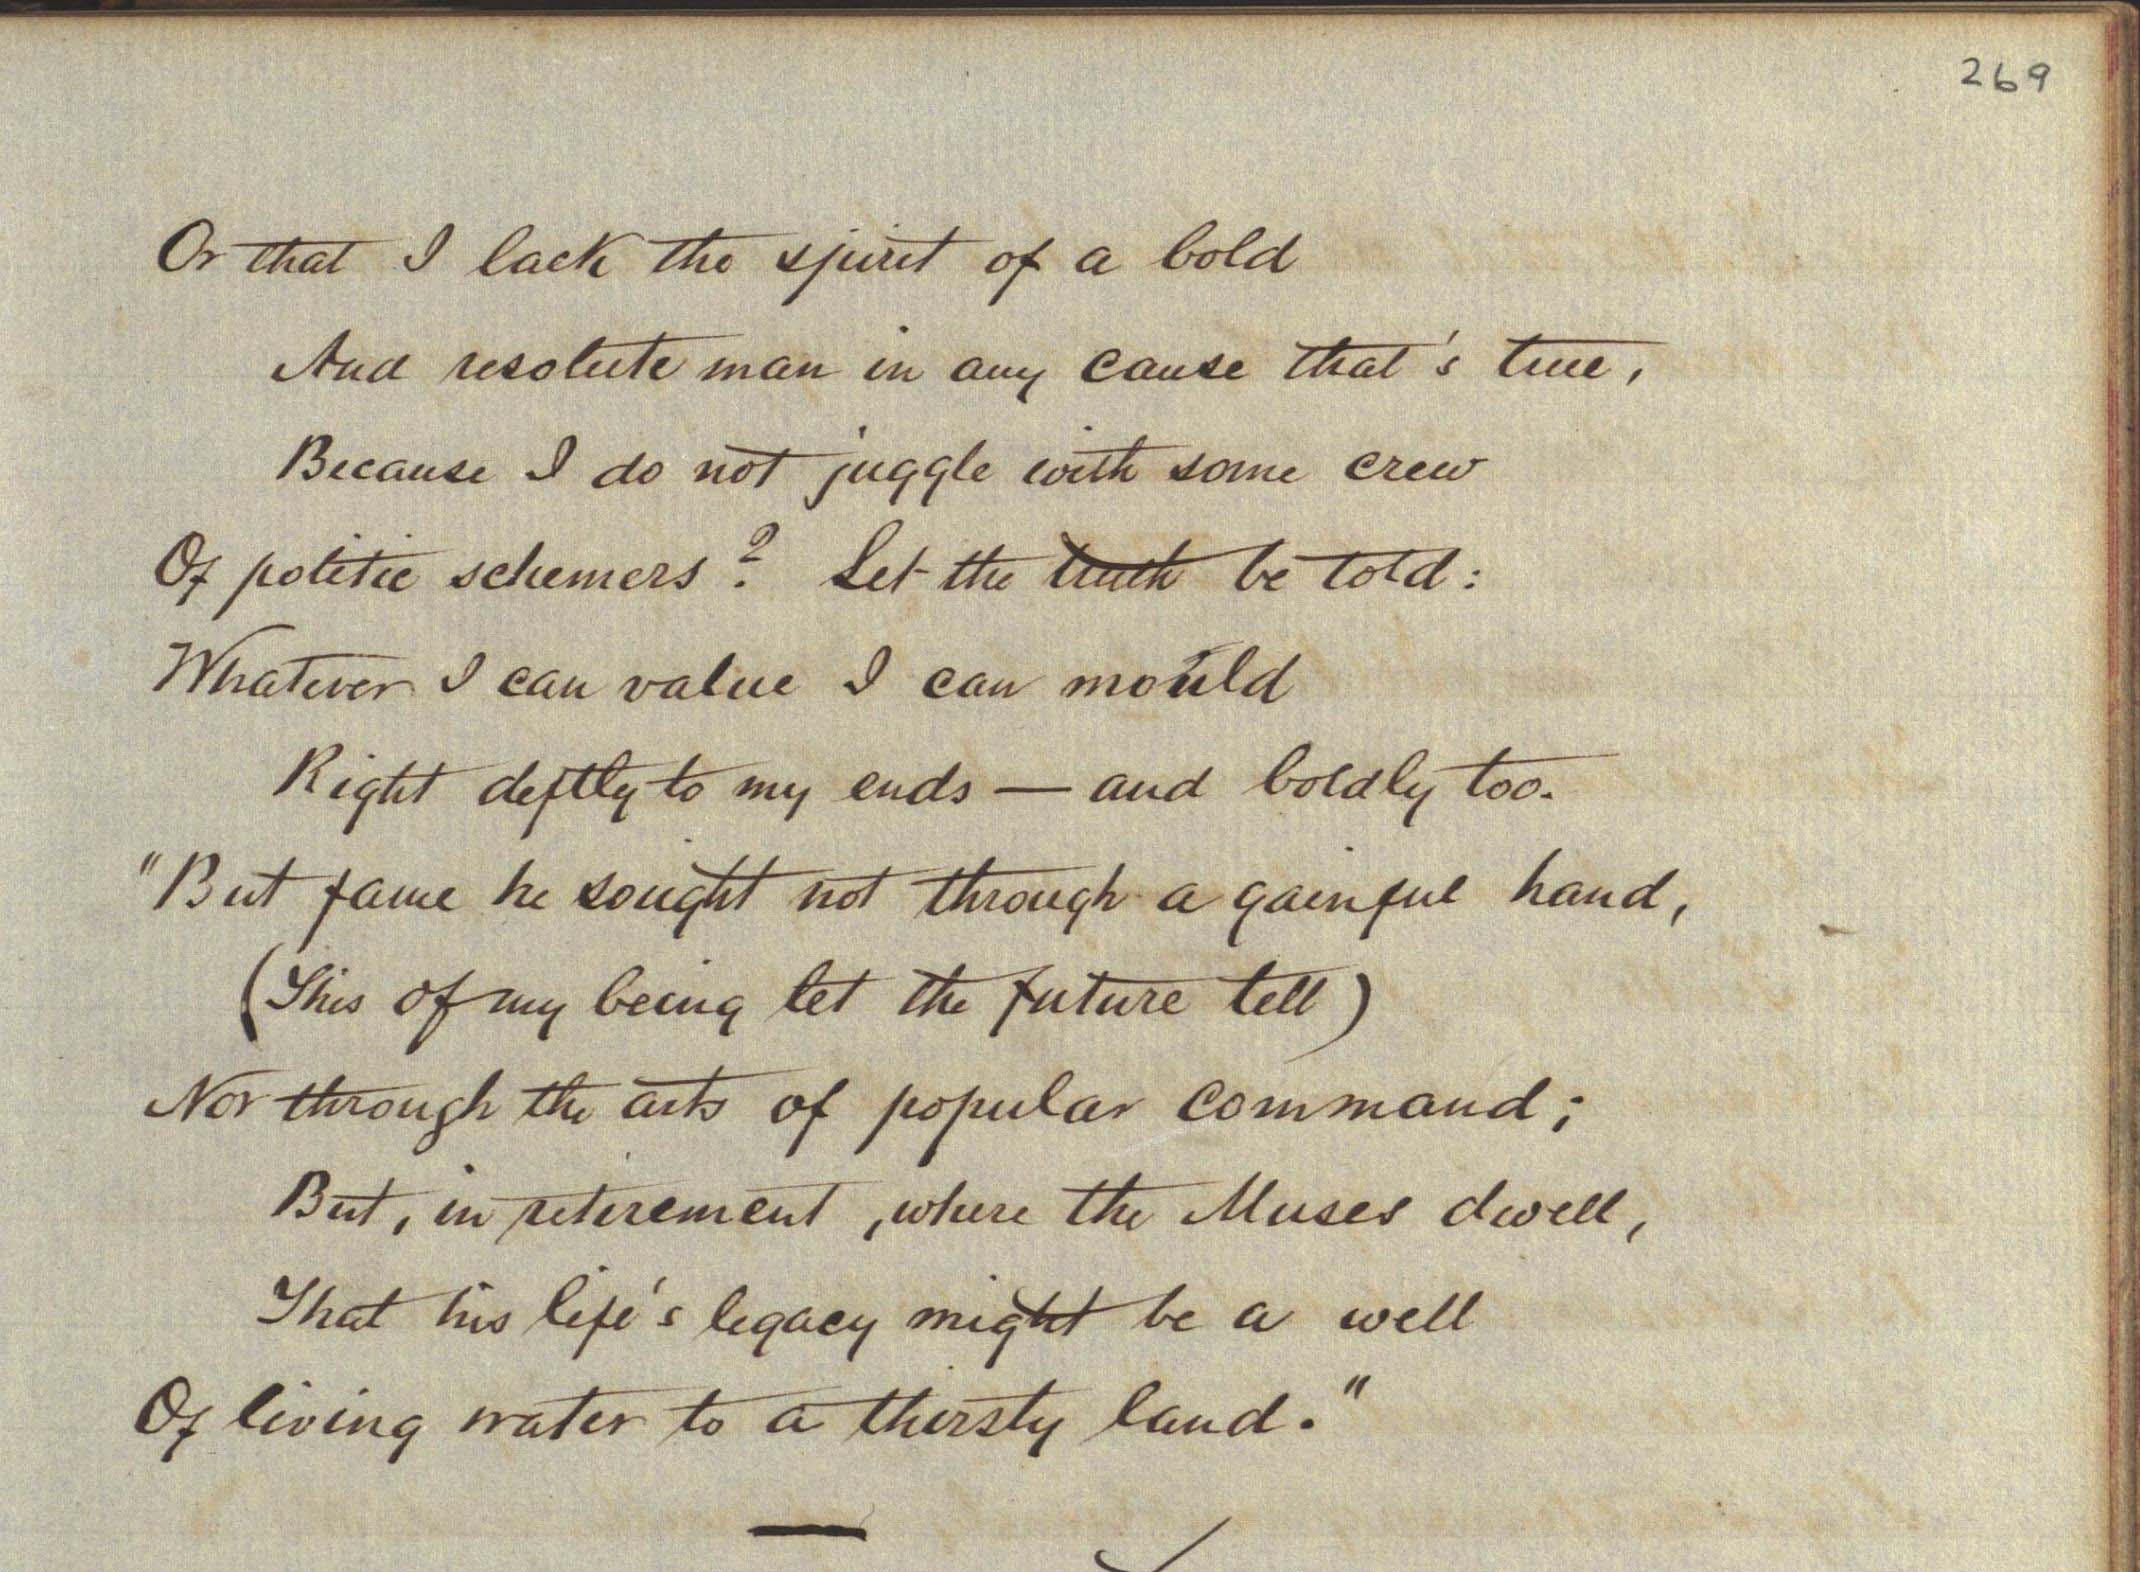 269
Or that I lack the spirit of a bold
And resolute man in any cause that's true,
Because I do not juggle with some crew
Of politic schemers? Let the truth be told:
Whatever I can value I can mould
Right deftly to my ends — and boldly too.
"But fame he sought not through a gainful hand,
(This of my being let the future tell)
Nor through the arts of popular command;
But, in retirement, where the Muses dwell,
That his life's legacy might be a well
Of living water to a thirsty land."